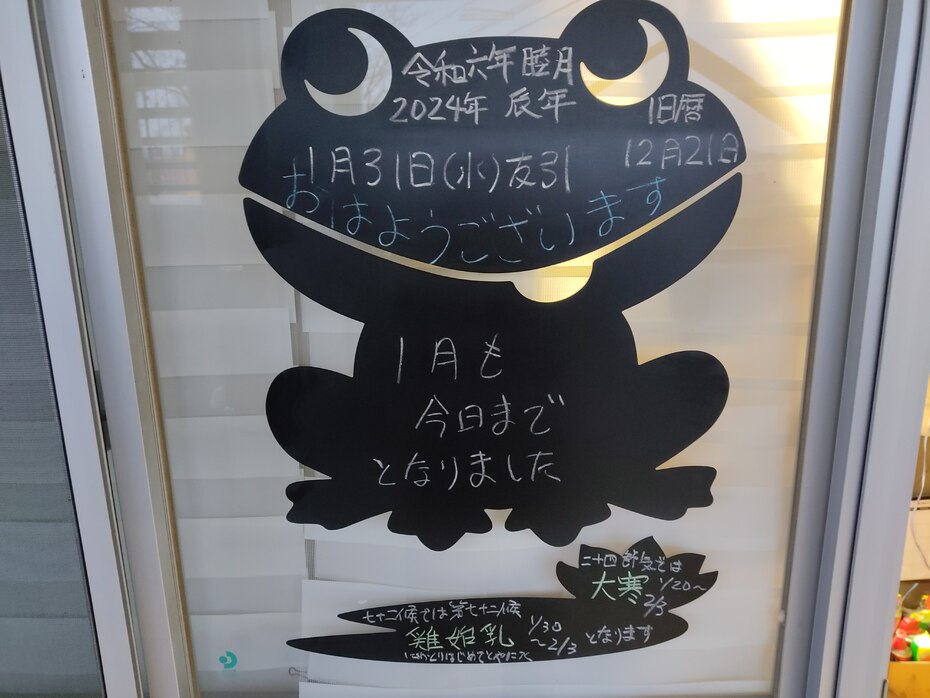 令和六年 睦月
2024年 辰年
旧暦
12月21日
1月31日(水)友引
おはようございます
1月も
今日まで
となりました
二十四節気では
大寒 1/20〜
2/3
七十二候では第七十二候
雞始乳 1/30
〜2/3 となります
にわとりはじめてとやにつく